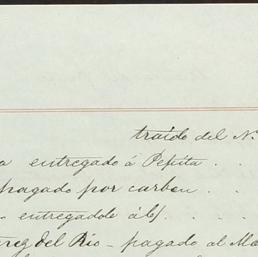 traído del N.
a entregado á Pepita . .
pagado por carbon . .
entregadole á
del Rio - pagado al